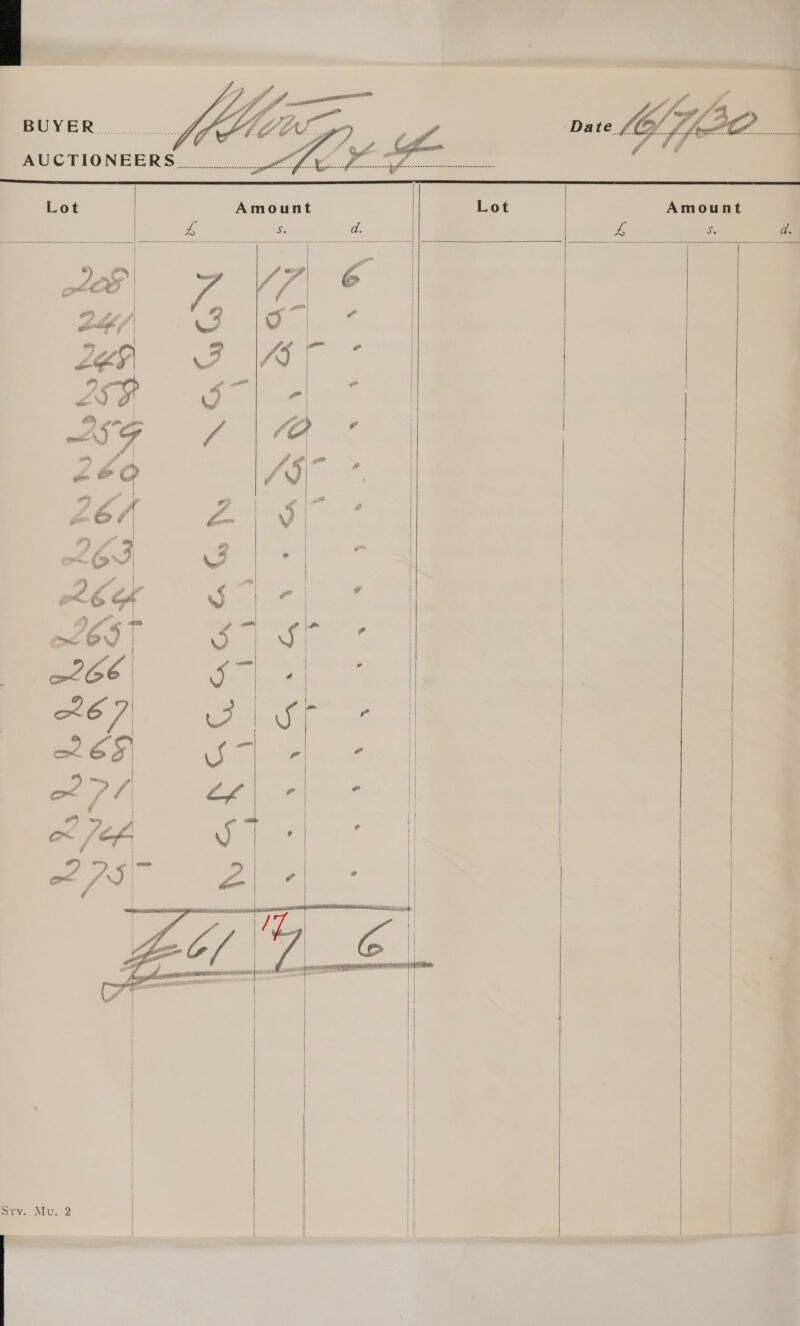 BUYER
Date 16/7/30
AUCTIONEERS
Lot Amount Lot Amount
£ s. d. £ s. d.
208 7 17 6
241 3 5 -
248 3 15 -
258 5 - -
259 1 10 -
260 15 -
261 2 5 -
263 3 - -
264 5 - -
265 5 5 -
266 5 - -
267 3 5 -
268 5 - -
271 4 - -
274 5 - -
275 2 - -
£61 17 6
Sty. Mu. 2